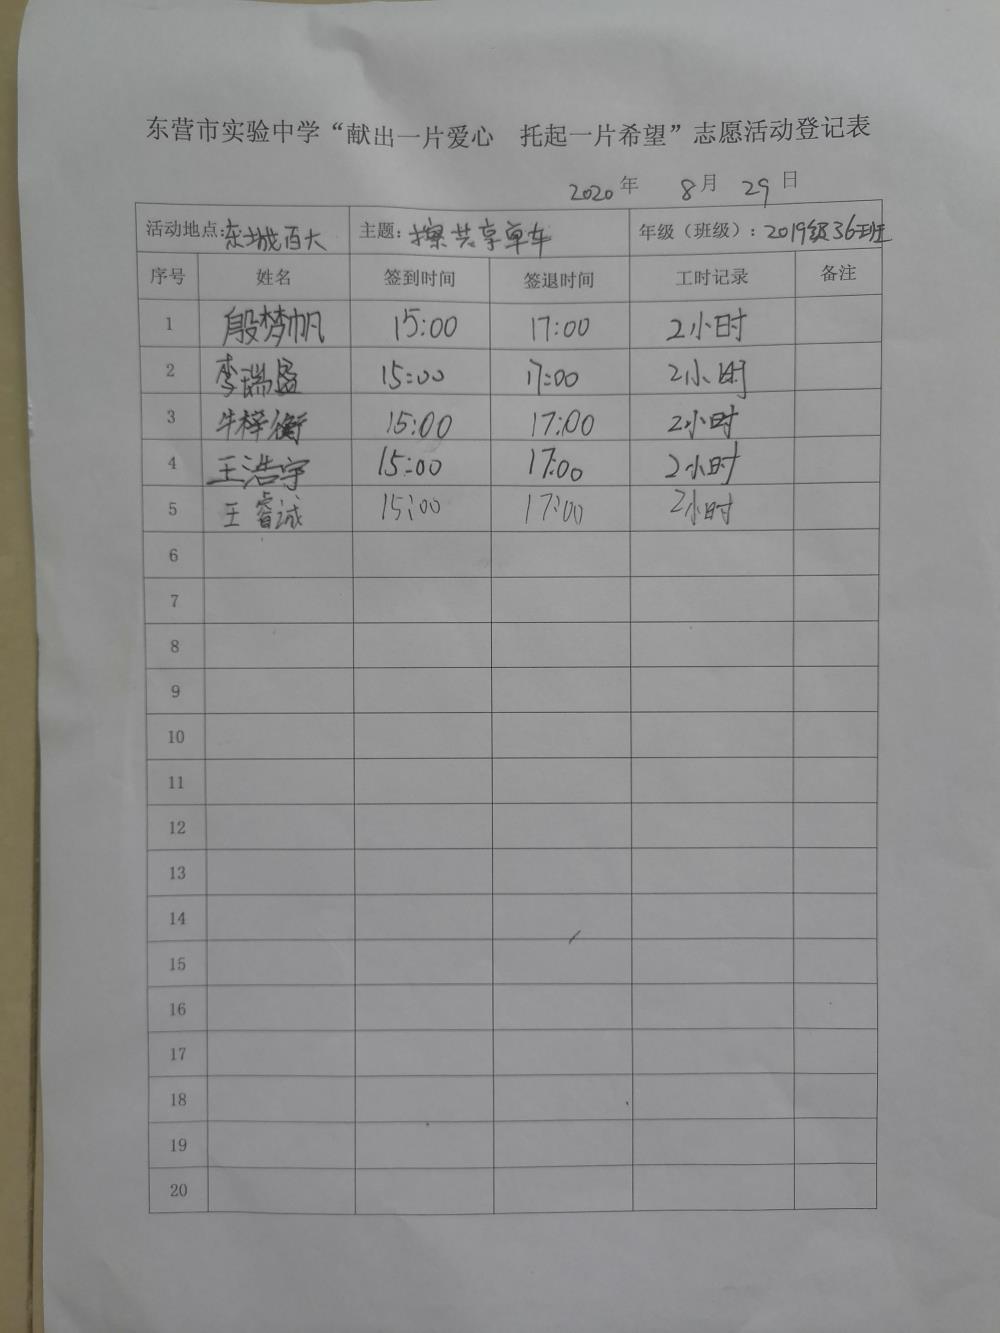 东营市实验中学“献出一片爱心 托起一片希望”志愿活动登记表
2020年 8月 29日
活动地点:东城百大 主题:擦共享单车 年级（班级）: 2019级36班
序号 姓名 签到时间 签退时间 工时记录 备注
1 殷梦帆 15:00 17:00 2小时
2 李瑞昌 15:00 17:00 2小时
3 牛梓衡 15:00 17:00 2小时
4 王浩宇 15:00 17:00 2小时
5 王睿诚 15:00 17:00 2小时
6
7
8
9
10
11
12
13
14
15
16
17
18
19
20